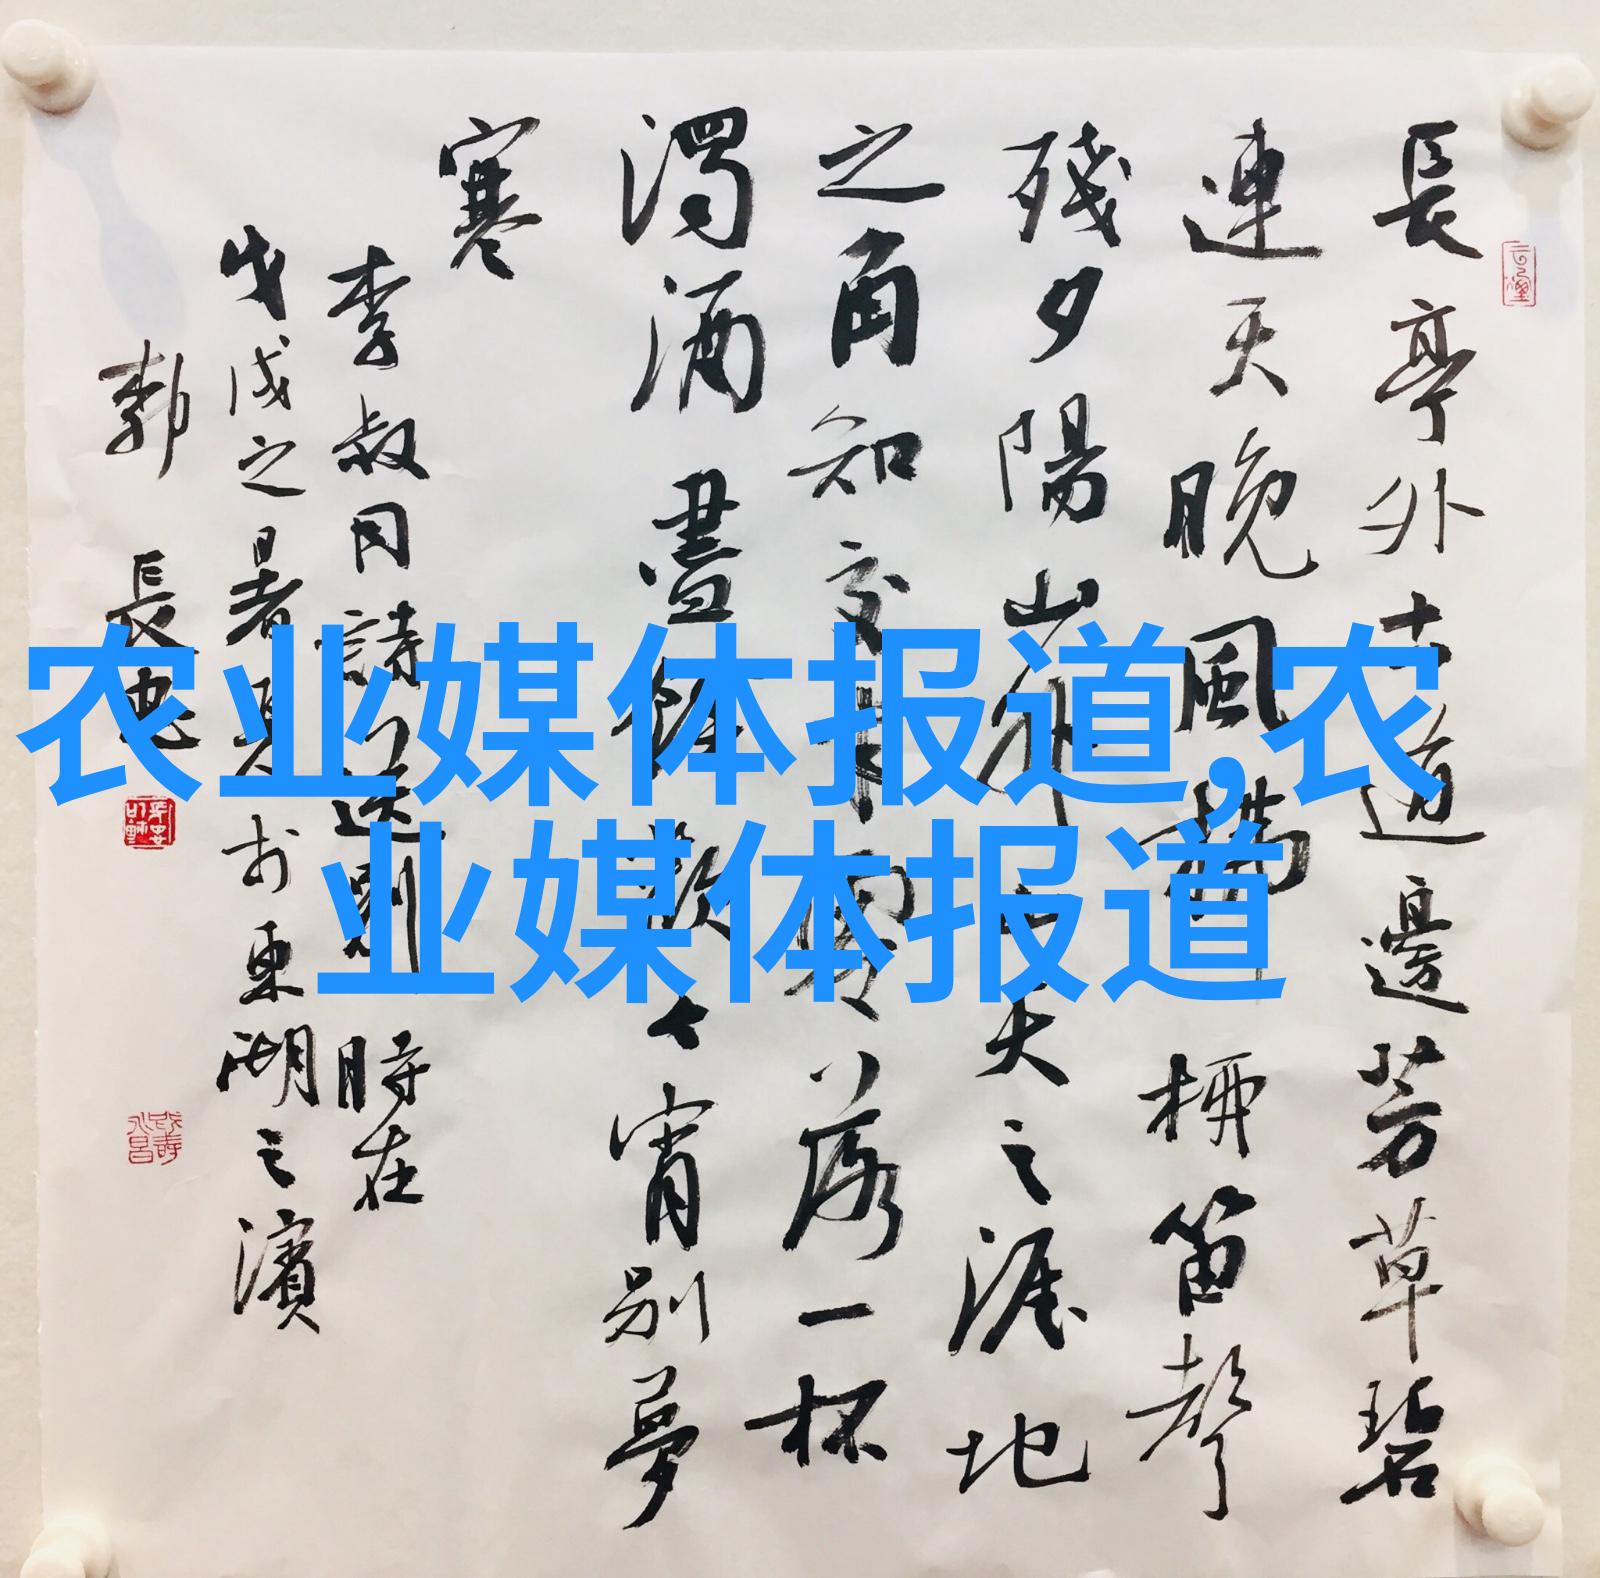 長亭外古道邊芳草碧
連天晚風拂柳笛聲
殘夕陽山外山天之涯地
之角知交半零落一杯
濁酒盡餘歡今宵別夢
寒
李叔同詩送別 時在
戊戌之暑夏於東湖之濱
郭 長忠
农业媒体报道,农
业媒体报道